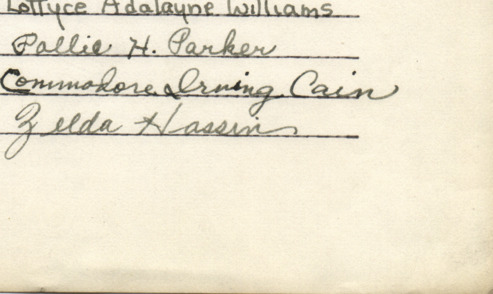 Lottyce Adalayne Williams
Pollie H. Parker
Commodore Irving Cain
Zelda Hassin